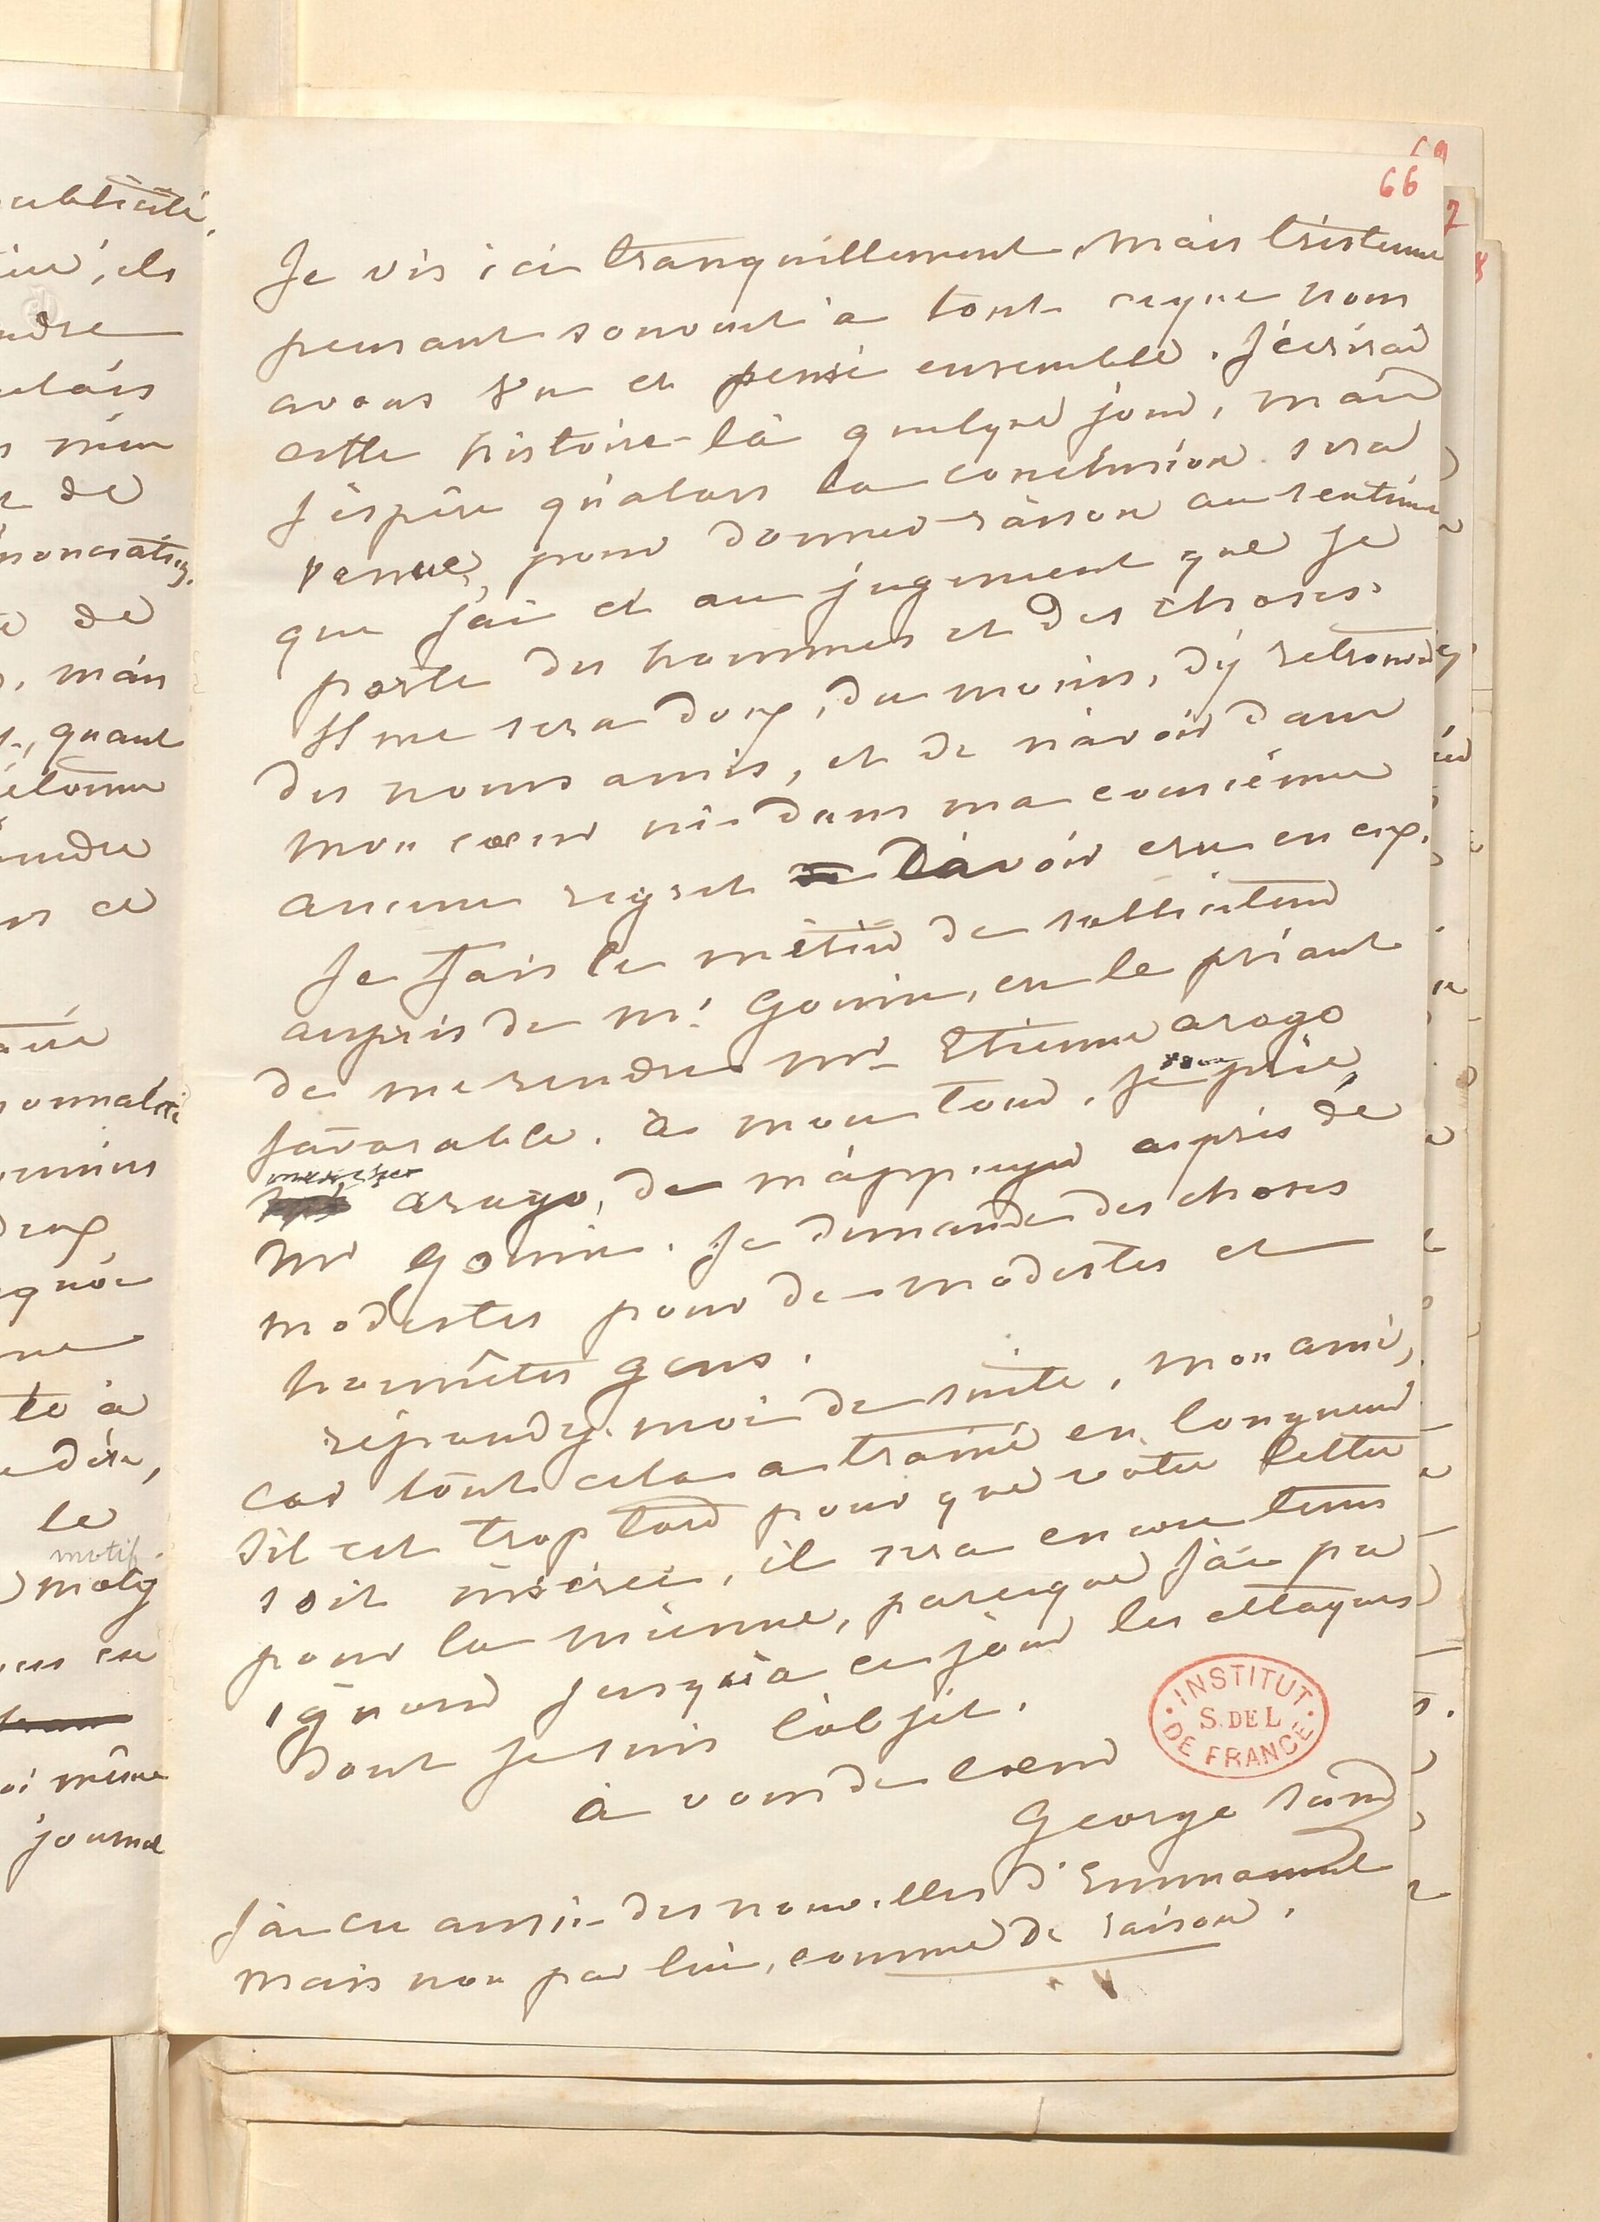 ublicité,
ieu, ils
ndre
ulais
rien
de
de
, mais
, quant
endre
ce
le
motif.
motif
oi même
journal
66
7
Je vis ici tranquillement, mais tristeme
pensant souvent à tout ceque nous
avons vu et pensé ensemble. J'écrirai
cette histoire-là quelque jour, mais
j'espère qu'alors la conclusion sera
venue, pour donner raison au sentime
que j'ai et au jugement que je
porte des hommes et des choses.
Il me sera doux, du moins, d'y retrouver
des noms amis, et de n'avoir dans
mon cœur ni dans ma conscience
aucun regret d'avoir cru en eux.
Je fais le métier de solliciteur
auprès de Mr. Gouin, en le priant
de me rendre Mr Etienne arago
favorable. à mon tour, je vous prie,
mon cher
arago, de m'appuyer auprès de
Mr Gouin. Je demande des choses
modestes pour de modestes et
honnêtes gens.
répondez moi de suite, mon ami,
car tout cela a trainé en longueur
S'il est trop tard pour que votre lettre
soit insérée, il sera encore tems
pour la mienne, parceque j'ai pu
ignorer jusqu'à ce jour les attaques
dont je suis l'objet.
à vous de cœur
George Sand
INSTITUT
S. DE L
DE FRANCE
J'ai eu aussi des nouvelles d'Emmanuel
mais non par lui, comme de raison.